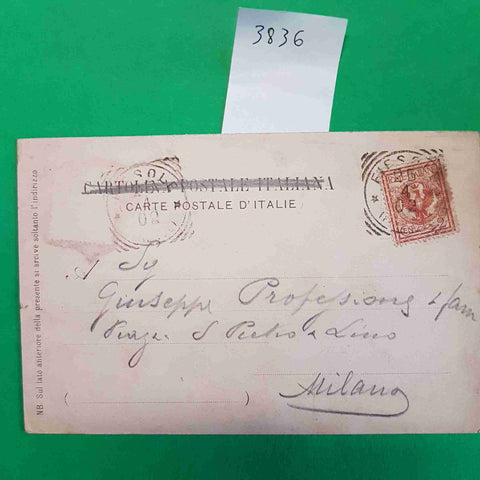 3836
CARTOLINA POSTALE ITALIANA
CARTE POSTALE D'ITALIE
NB. Sul lato anteriore della presente si scrive soltanto l'indirizzo
SOL
4
02
FIESO
A Sig
Giuseppe Professione & fam
S Pietro Lino
Milano